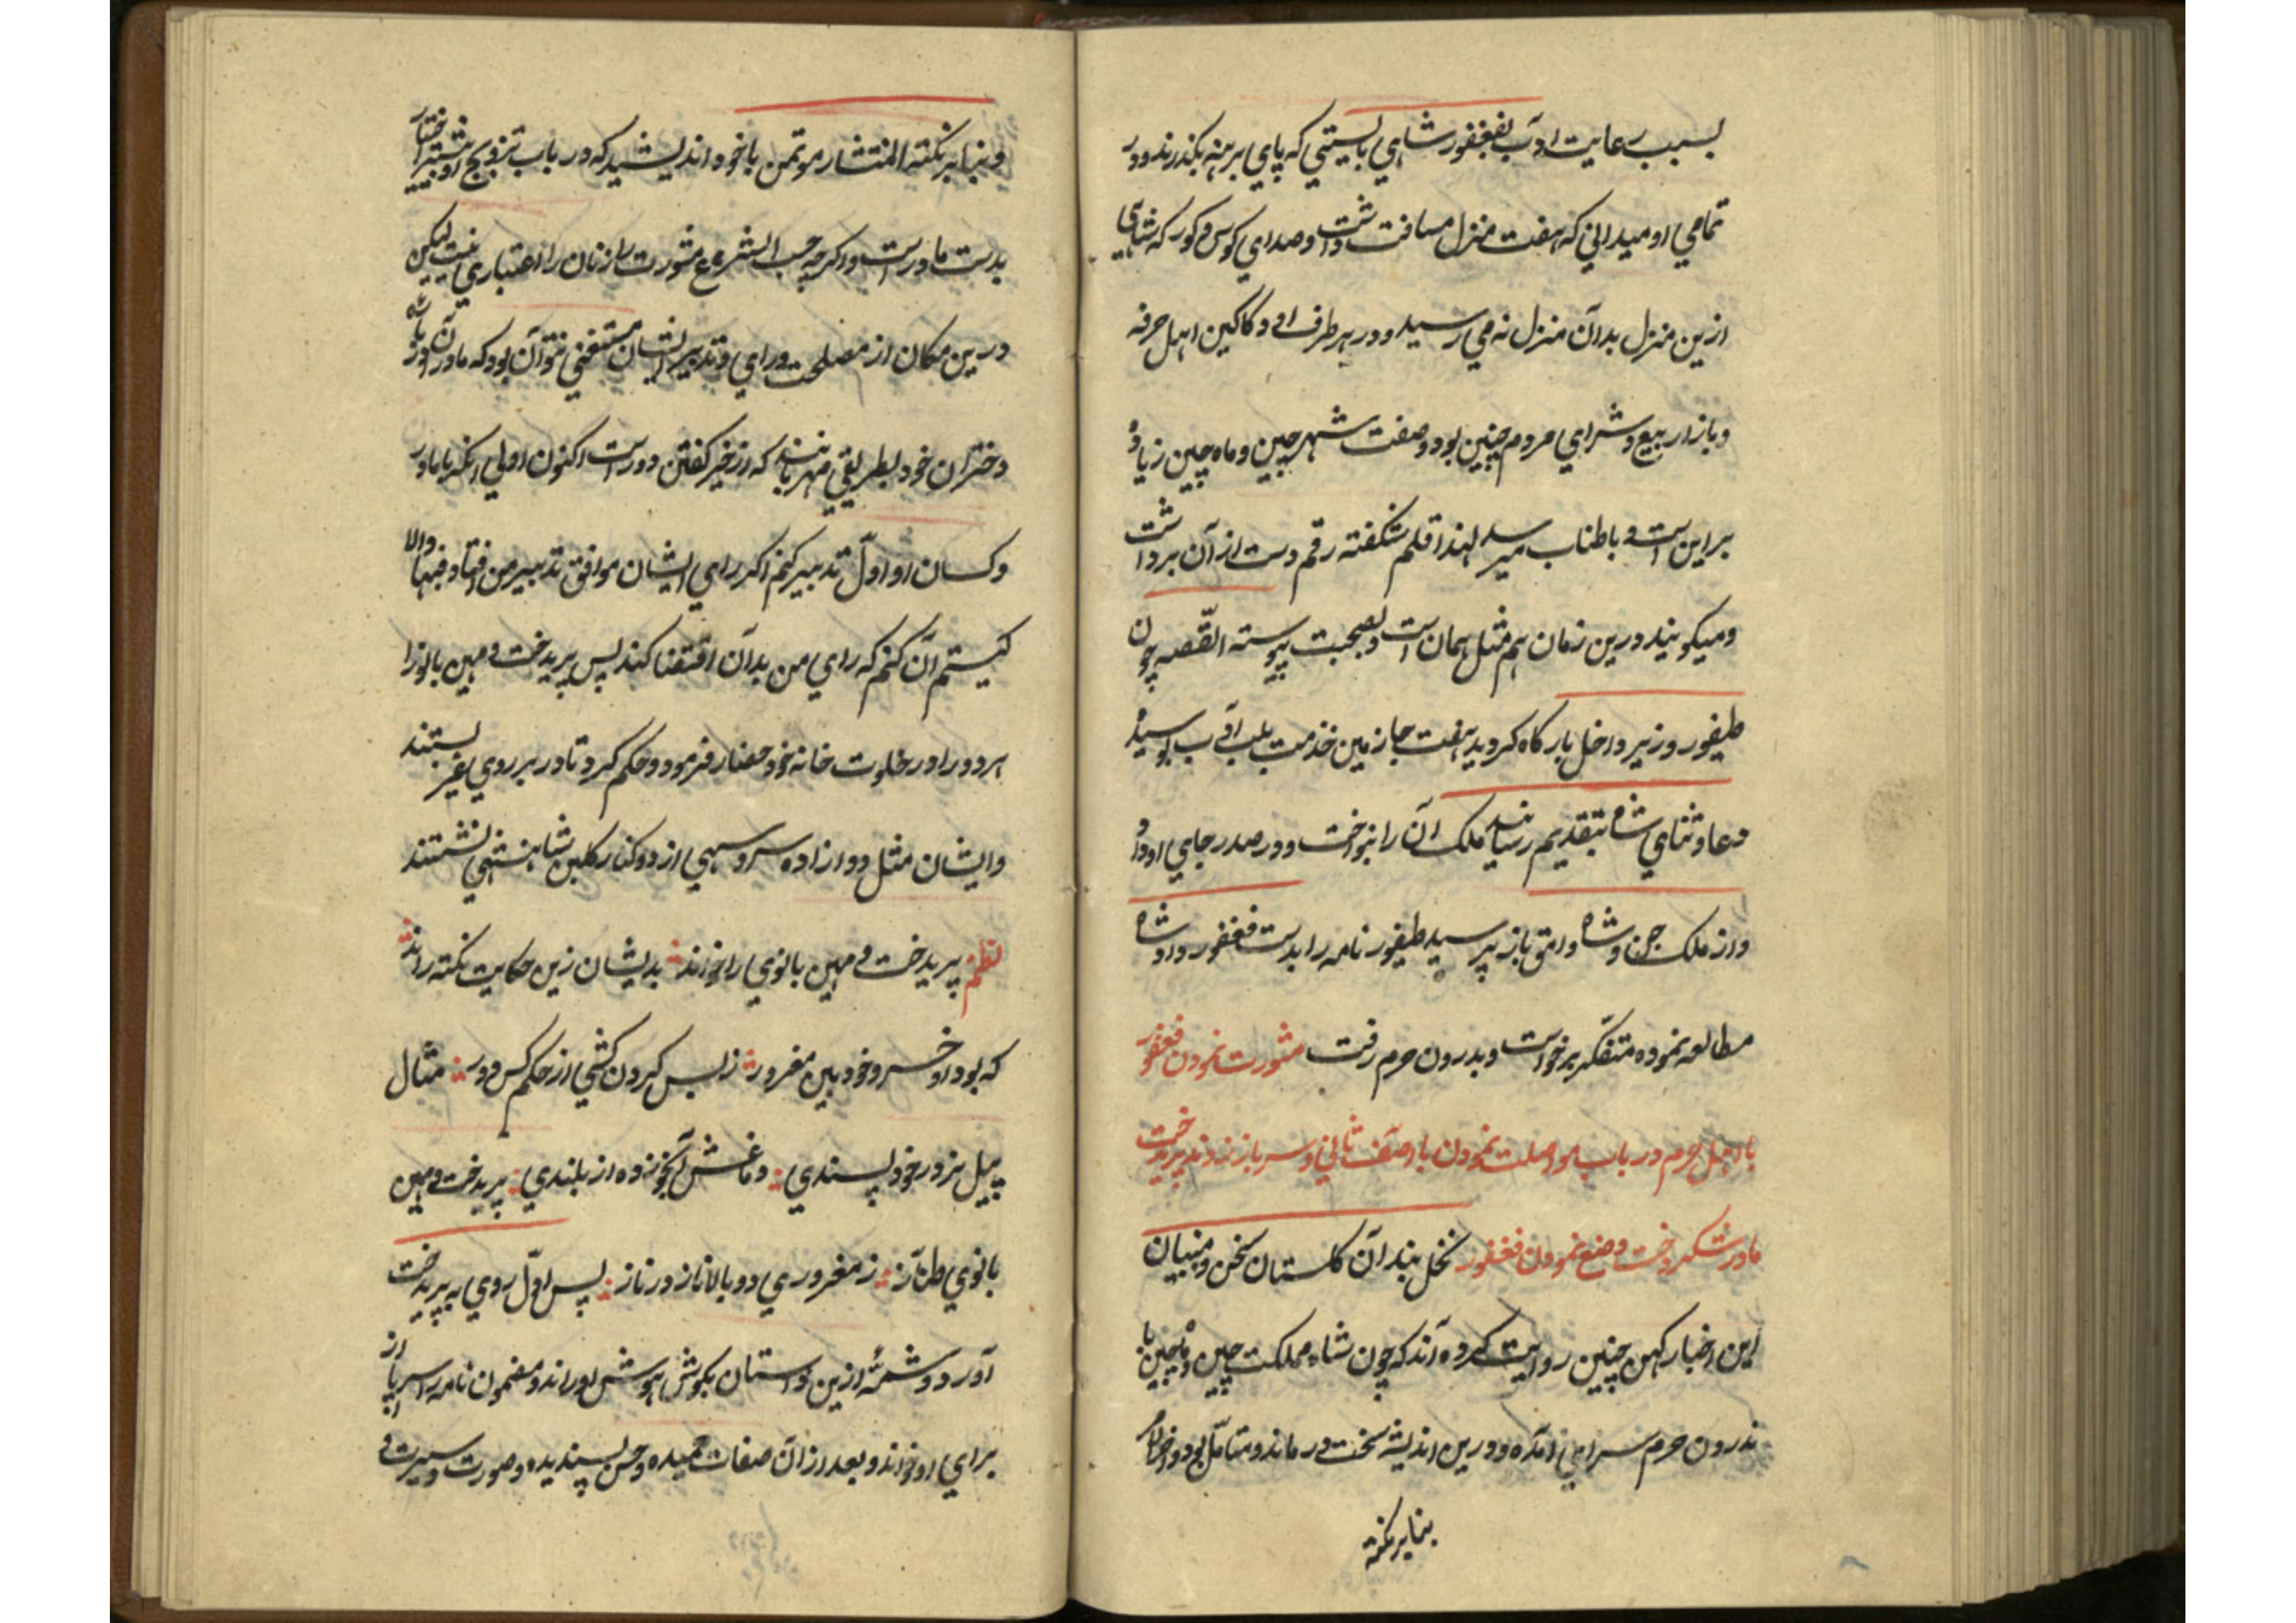 بسبب رعایت ادب فغفور شاهی بایستی که پای برهنه بگذرند و در
تمامی او میدانی که هفت منزل مسافت داشت و صدای کوس و کور که شاهی
ازین منزل بدان منزل نه می رسید و در هر طرف او دکاکین اهل حرفه
و بازار بیع و شرای مردم چنین بود و صفت شهر چین و ماه چین زیاده
براین است و باطناب میرسد لهذا قلم شکفته رقم دست از آن برداشت
و میکویند درین زمان هم مثل همان است و بصحبت پیوسته القصه چون
طیفور وزیر داخل بارکاه کردید هفت جا زمین خدمت بلب ادب بوسید
دعا و ثنای شاه بتقدیم رسانید ملک آن را بنواخت و در صدر جای او داد
و از ملک جن و شاه وامق باز پرسید طیفور نامه را بدست فغفور داد شاه
مطالعه نموده متفکر برخواست و بدرون حرم رفت مشورت نمودن فغفور
با اهل حرم در باب مواصلت نمودن با آصف ثانی و سر باز زدند پریدخت
مادر شکر دخت و منع نمودن فغفور نخل بندان کلستان سخن و منبیان
این اخبار کهن چنین روایت کرده اند که چون شاه مملکت چین و ماچین با
ندرون حرم سرای آمده و درین اندیشه سخت درماند و متامل بود
بنابر نکته
و بنابر نکته المنتشار موتمن با خود اندیشید که در باب تزویج او بیشتر اختیار
بدست مادر است و اکرچه حسب الشرع مشورت زنان را اعتباری نیست لیکن
درین مکان از مصلحت و رای و تدبیر ایشان مستغنی نتوان بود که مادران باشد
دختران خود بطریقی مهربانند که از خیر کفتن دور است اکنون اولی انکه با مادر
و کسان او اول تدبیر کنم اکر رای ایشان موافق تدبیر من افتاد فبها والا
کیستم آن کنم که رای من بدان اقتضا کند پس پریدخت و مهین بانو را
هر دو را در خلوت خانه خود حضار فرمود و حکم کرد تا در بر روی غیر بستند
و ایشان مثل دو ازاده سرو سهی از دو کنار کلبن شاهنشهی نشستند
نظم پریدخت و مهین بانوی را خواند بدیشان زین حکایت نکته راند
که بود او خسرو خود بین مغرور ز بس کردن کشی از حکم کس دور مثال
پیل بزور خود پسندی دماغش آبخوز ده از بلندی پریدخت و مهین
بانوی طناز ز مغروری دو بالا ناز در ناز پس اول روی به پریدخت
آورد و شمه ازین داستان بکوش هوش او راند و مضمون نامه را سر باز
برای او خواند و بعد از آن صفات حمیده و حسن پسندیده و صورت و سیرت